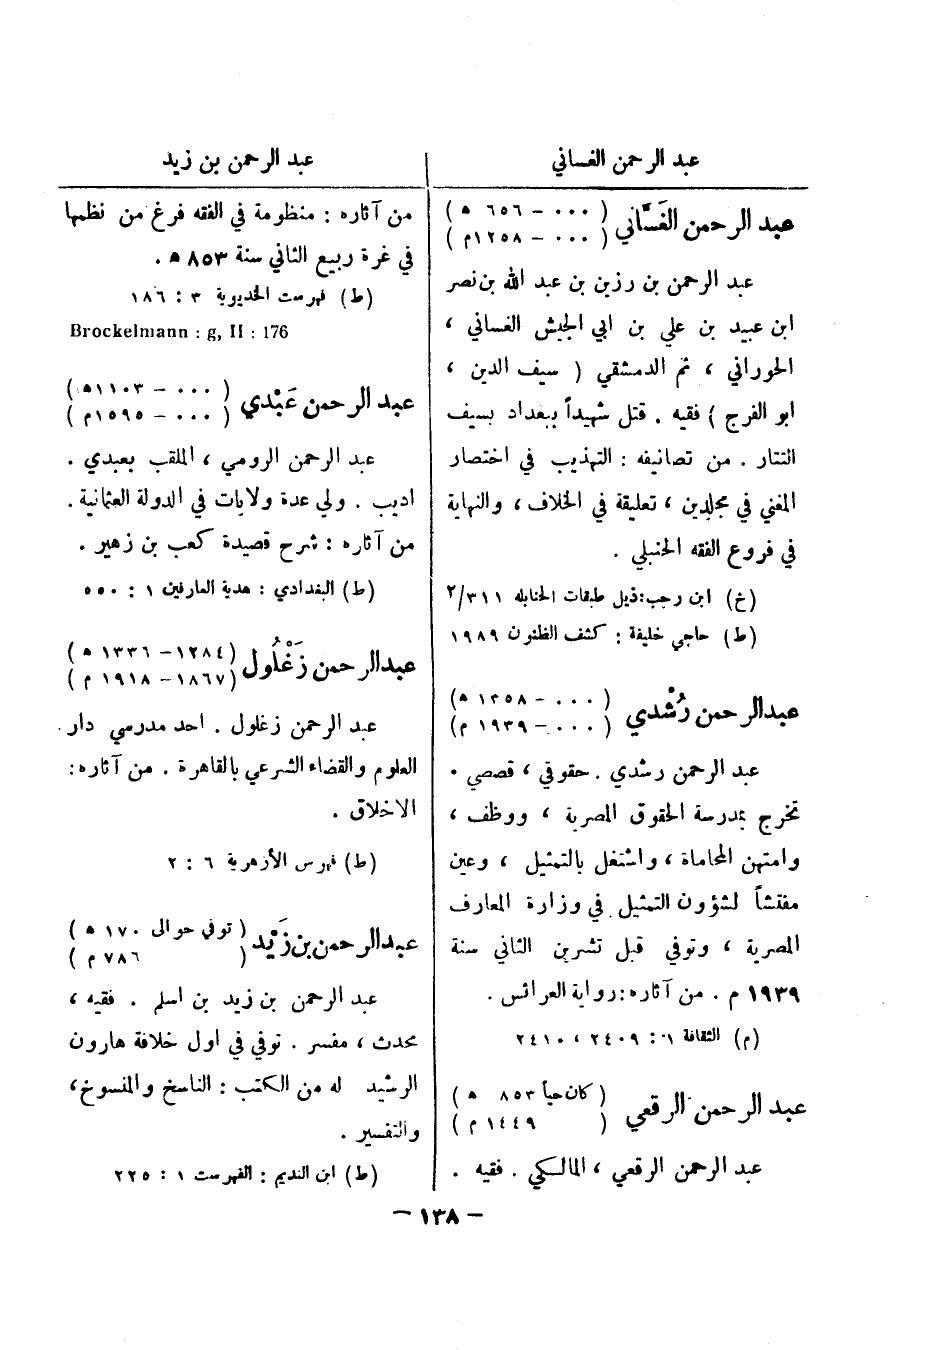 عبد الرحمن الغساني
عبد الرحمن بن زيد
عبد الرحمن الغَسَّاني (٠٠٠ – ٦٥٦ ه)
(٠٠٠ – ١٢٥٨م)
عبد الرحمن بن رزين بن عبد الله بن نصر
ابن عبيد بن علي بن ابي الجيش الغساني ،
الحوراني ، ثم الدمشقي ( سيف الدين ،
ابو الفرج ) فقيه . قتل شهيداً ببغداد بسيف
التتار . من تصانيفه : التهذيب في اختصار
المغني في مجلدين ، تعليقة في الخلاف ، والنهاية
في فروع الفقه الحنبلي .
(خ) ابن رجب:ذيل طبقات الحنابله ٢/٣١١
(ط) حاجي خليفة : كشف الظنون ١٩٨٩
عبد الرحمن رُشْدي (٠٠٠ – ١٣٥٨ ه)
(٠٠٠ – ١٩٣٩ م)
عبد الرحمن رشدي . حقوقي ، قصصي .
تخرج بمدرسة الحقوق المصرية ، ووظف ،
وامتهن المحاماة ، واشتغل بالتمثيل ، وعين
مفتشاً لشؤون التمثيل في وزارة المعارف
المصرية ، وتوفي قبل تشرين الثاني سنة
١٩٣٩ م . من آثاره : رواية العرائس .
(م) الثقافة ١ : ٢٤٠٩ ، ٢٤١٠
عبد الرحمن الرقعي (كان حياً ٨٥٣ ه)
(١٤٤٩ م)
عبد الرحمن الرقعي ، المالكي . فقيه .
من آثاره : منظومة في الفقه فرغ من نظمها
في غرة ربيع الثاني سنة ٨٥٣ ه .
(ط) فهرست الخديوية ٣ : ١٨٦
Brockelmann : g, II : 176
عبد الرحمن عَبْدي (٠٠٠ – ١١٠٣ه)
(٠٠٠ – ١٥٩٥م)
عبد الرحمن الرومي ، الملقب بعبدي .
اديب . ولي عدة ولايات في الدولة العثمانية .
من آثاره : شرح قصيدة كعب بن زهير .
(ط) البغدادي : هدية العارفين ١ : ٥٥٠
عبد الرحمن زَغْلُول (١٢٨٤ – ١٣٣٦ ه)
(١٨٦٧ – ١٩١٨ م)
عبد الرحمن زغلول . احد مدرسي دار
العلوم والقضاء الشرعي بالقاهرة . من آثاره:
الاخلاق .
(ط) فهرس الأزهرية ٦ : ٢
عبد الرحمن بن زَيْد (توفي حوالى ١٧٠ ه)
(٧٨٦ م)
عبد الرحمن بن زيد بن اسلم . فقيه ،
محدث ، مفسر . توفي في اول خلافة هارون
الرشيد له من الكتب : الناسخ والمنسوخ،
والتفسير .
(ط) ابن النديم : الفهرست ١ : ٢٢٥
– ١٣٨ –